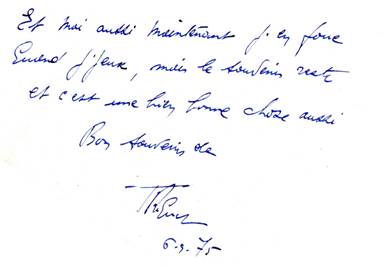 Et moi aussi maintenant j'en fume
Quand j'peux, mais le souvenir reste
et c'est une bien bonne chose aussi
Bon souvenir de
6-9-75